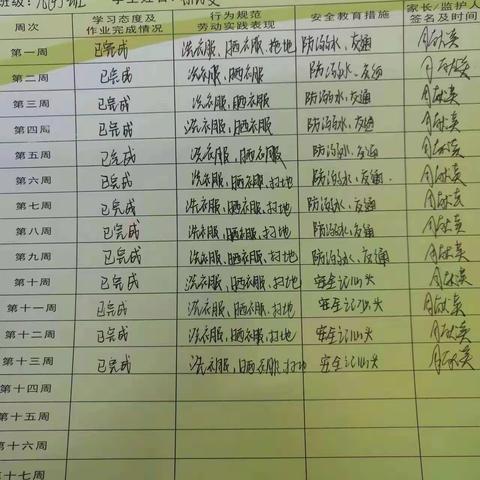 周次 学习态度及作业完成情况 行为规范劳动实践表现 安全教育措施 家长/监护人签名及时间
第一周 已完成 洗衣服、晒衣服、拖地 防溺水、交通
第二周 已完成 洗衣服、晒衣服 防溺水、交通
第三周 已完成 洗衣服、晒衣服 防溺水、交通
第四周 已完成 洗衣服、晒衣服 防溺水、交通
第五周 已完成 洗衣服、晒衣服 防溺水、交通
第六周 已完成 洗衣服、晒衣服、扫地 防溺水、交通
第七周 已完成 洗衣服、晒衣服、扫地 防溺水、交通
第八周 已完成 洗衣服、晒衣服、扫地 防溺水、交通
第九周 已完成 洗衣服、晒衣服、扫地 防溺水、交通
第十周 已完成 洗衣服、晒衣服、扫地 安全记心头
第十一周 已完成 洗衣服、晒衣服、扫地 安全记心头
第十二周 已完成 洗衣服、晒衣服、扫地 安全记心头
第十三周 已完成 洗衣服、晒衣服、扫地 安全记心头
第十四周
第十五周
第十六周
第十七周